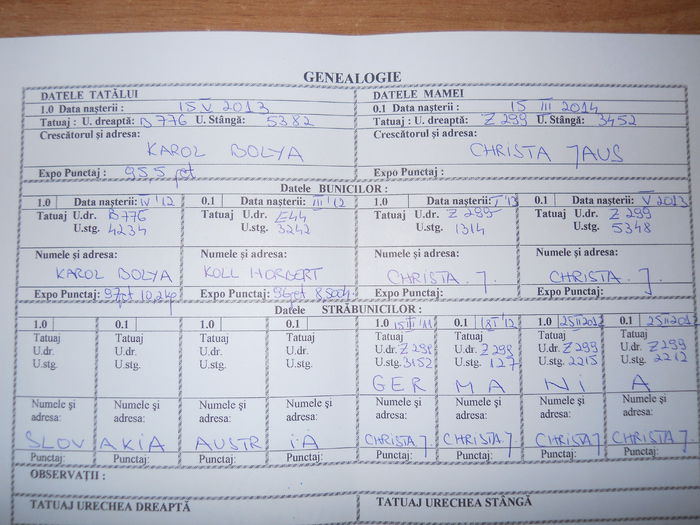 GENEALOGIE
DATELE TATĂLUI
DATELE MAMEI
1.0 Data nașterii : 15 V 2013
0.1 Data nașterii : 15 III 2014
Tatuaj : U. dreaptă: B 776 U. Stângă: 5382
Tatuaj : U. dreaptă: Z 299 U. Stângă: 3452
Crescătorul și adresa:
Crescătorul și adresa:
KAROL BOLYA
CHRISTA JAUS
Expo Punctaj : 95.5 pct
Expo Punctaj :
Datele BUNICILOR :
1.0 Data nașterii: IV '12
0.1 Data nașterii: III '12
1.0 Data nașterii: I '13
0.1 Data nașterii: V 2013
Tatuaj U.dr. B776
Tatuaj U.dr. E44
Tatuaj U.dr. Z 299
Tatuaj U.dr. Z 299
U.stg. 4234
U.stg. 3242
U.stg. 1314
U.stg. 5348
Numele și adresa:
Numele și adresa:
Numele și adresa:
Numele și adresa:
KAROL BOLYA
KOLL HORBERT
CHRISTA. J.
CHRISTA. J.
Expo Punctaj: 97pct 10,2kg
Expo Punctaj: 96pct
Expo Punctaj:
Expo Punctaj:
Datele STRĂBUNICILOR :
1.0
0.1
1.0
0.1
1.0 15 III '11
0.1 '12
1.0
0.1
Tatuaj
Tatuaj
Tatuaj
Tatuaj
Tatuaj
Tatuaj
Tatuaj
Tatuaj
U.dr.
U.dr.
U.dr.
U.dr.
U.dr. Z 299
U.dr. Z 299
U.dr. Z 299
U.dr. Z 299
U.stg.
U.stg.
U.stg.
U.stg.
U.stg. 3152
U.stg. 127
U.stg. 2215
U.stg. 2212
GER MA Ni A
Numele și
Numele și
Numele și
Numele și
Numele și
Numele și
Numele și
Numele și
adresa:
adresa:
adresa:
adresa:
adresa:
adresa:
adresa:
adresa:
SLOV AKiA AUSTR iA
CHRISTA J.
CHRISTA J.
CHRISTA J
CHRISTA J.
Punctaj:
Punctaj:
Punctaj:
Punctaj:
Punctaj:
Punctaj:
Punctaj:
Punctaj:
OBSERVAȚII :
TATUAJ URECHEA DREAPTĂ
TATUAJ URECHEA STÂNGĂ